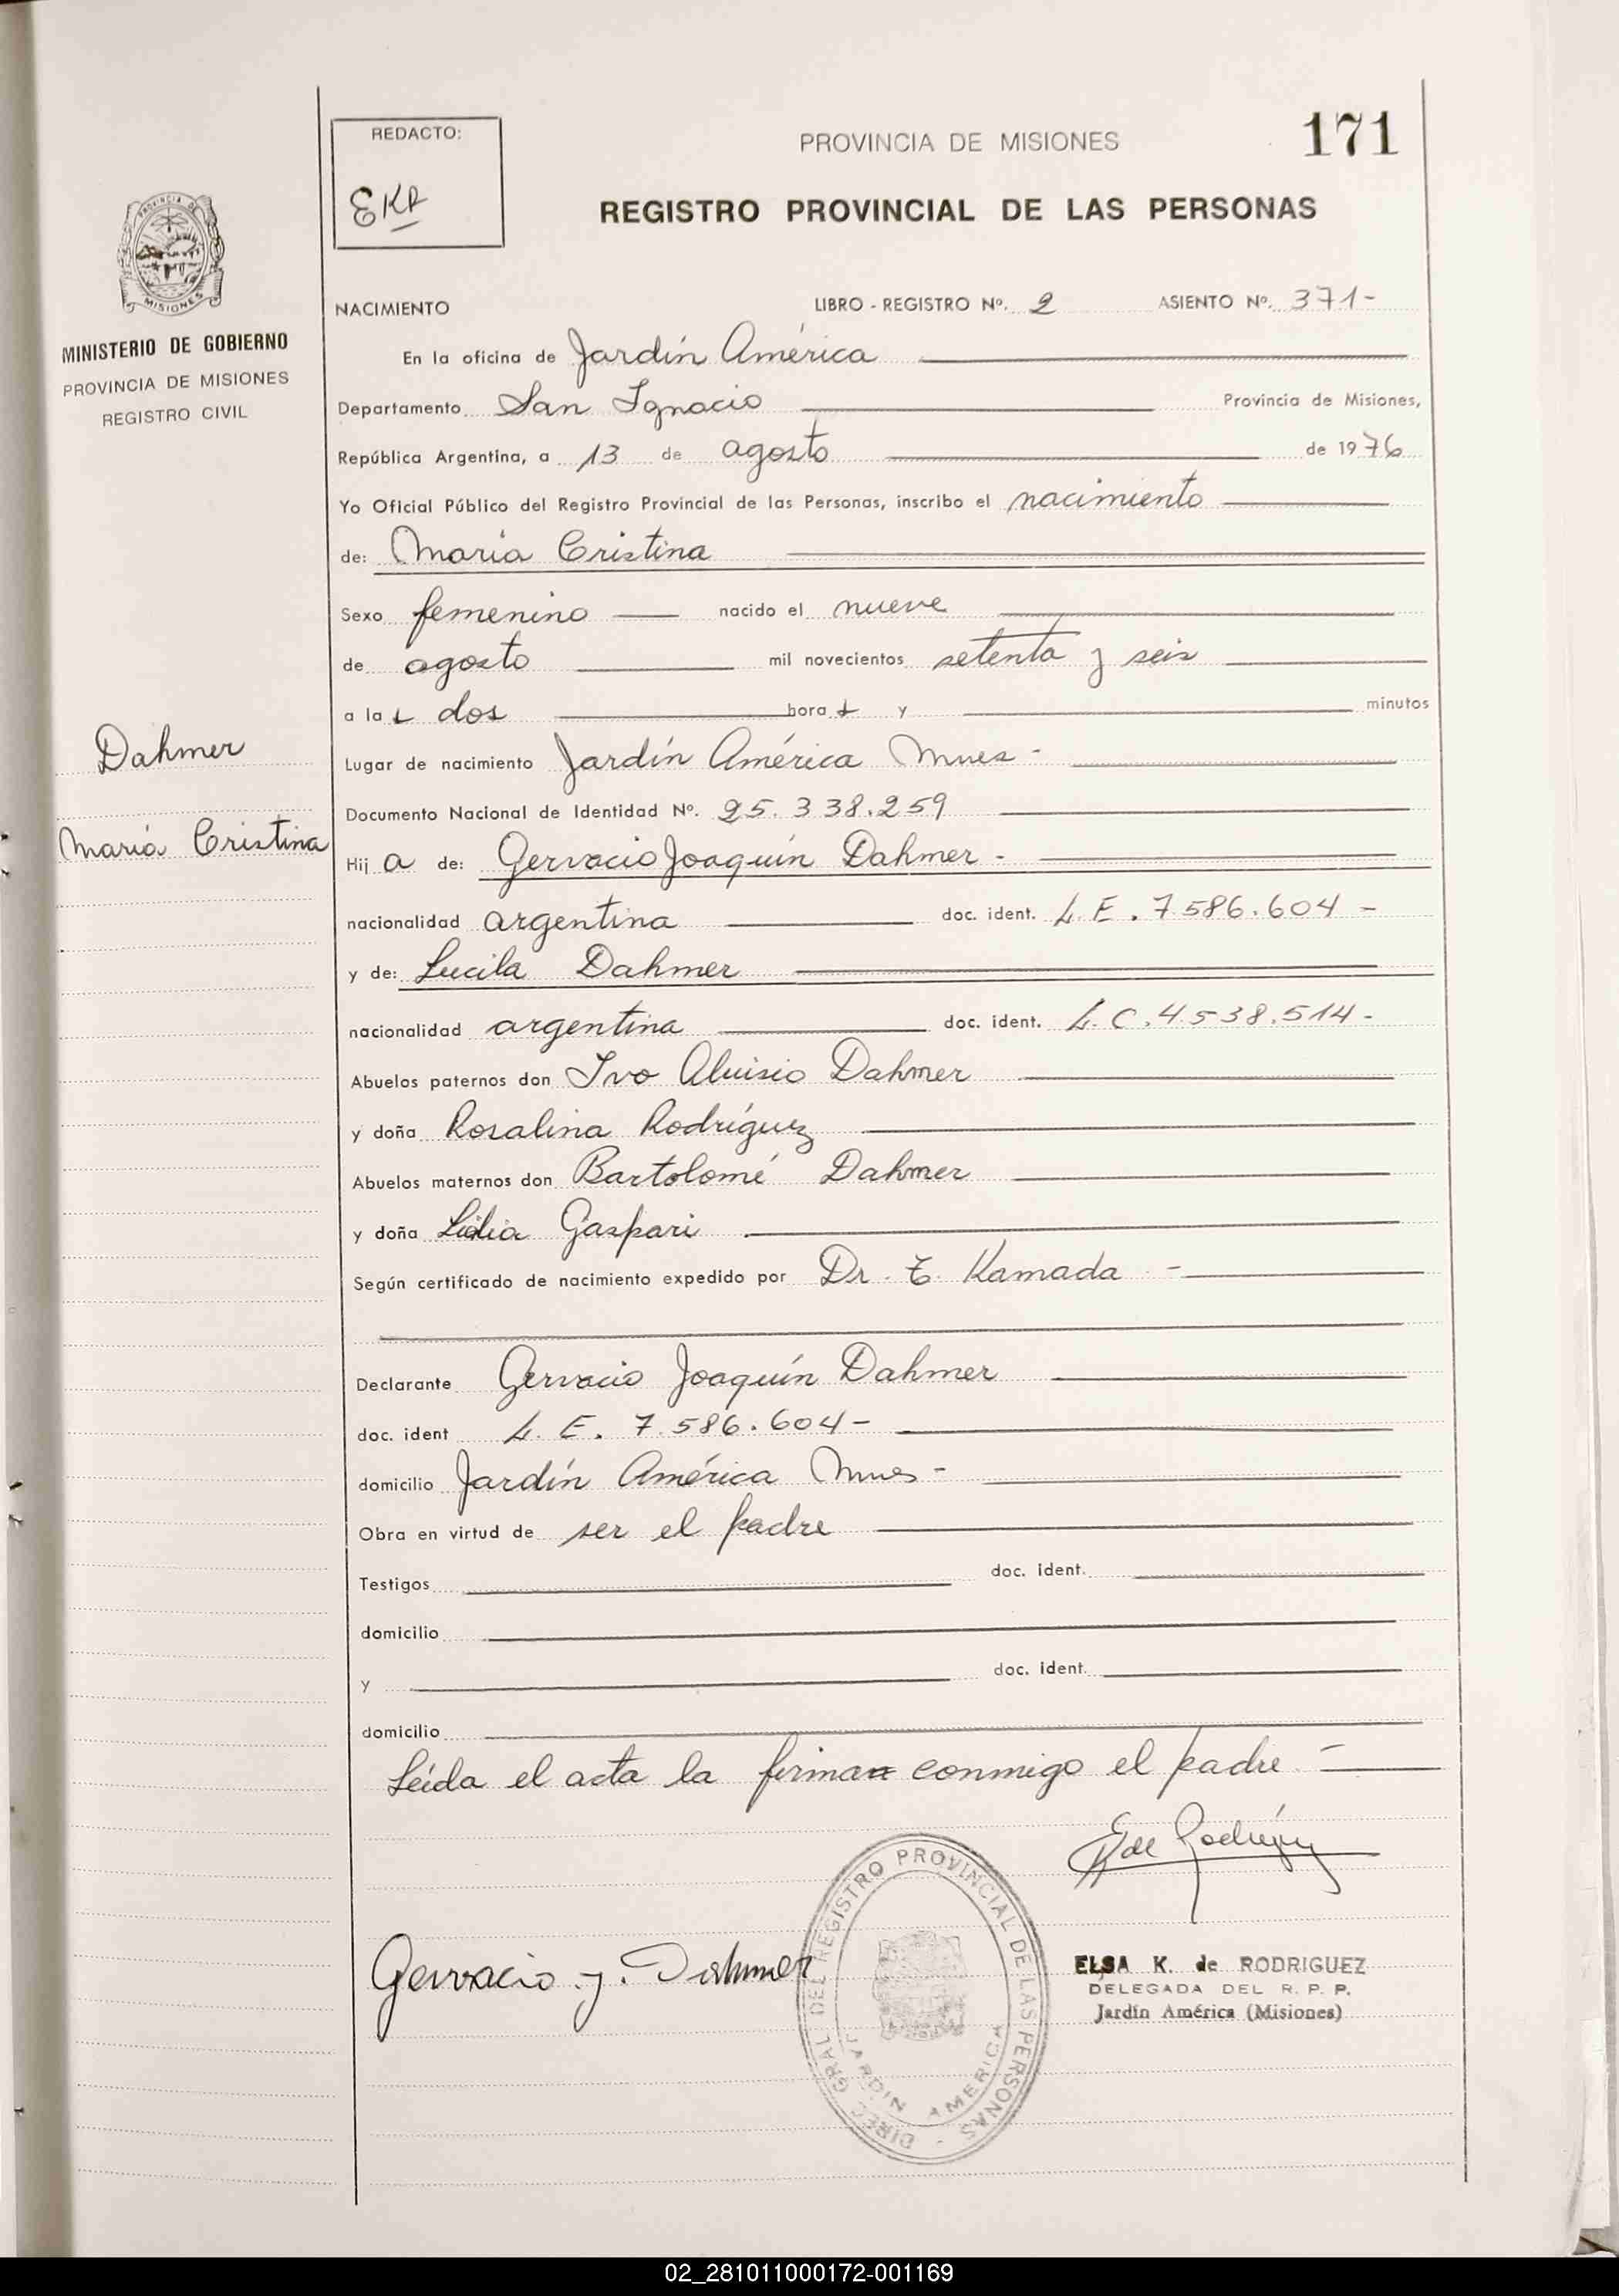 REDACTO:
EKR
PROVINCIA DE MISIONES
171
REGISTRO PROVINCIAL DE LAS PERSONAS
MINISTERIO DE GOBIERNO
PROVINCIA DE MISIONES
REGISTRO CIVIL
NACIMIENTO LIBRO - REGISTRO Nº. 2 ASIENTO Nº. 371-
En la oficina de Jardín América
Departamento San Ignacio Provincia de Misiones,
República Argentina, a 13 de agosto de 1976
Yo Oficial Público del Registro Provincial de las Personas, inscribo el nacimiento
de: María Cristina
Sexo femenino nacido el nueve
de agosto mil novecientos setenta y seis
a las dos horas y minutos
Dahmer
Lugar de nacimiento Jardín América Mnes-
Documento Nacional de Identidad Nº. 25.338.259
María Cristina
Hija de: Gervacio Joaquín Dahmer-
nacionalidad argentina doc. ident. L.E. 7.586.604-
y de: Lucila Dahmer
nacionalidad argentina doc. ident. L.C. 4.538.514-
Abuelos paternos don Ivo Aluisio Dahmer
y doña Rosalina Rodríguez
Abuelos maternos don Bartolomé Dahmer
y doña Gaspari
Según certificado de nacimiento expedido por Dr. Kamada-
Declarante Gervacio Joaquín Dahmer
doc. ident L.E. 7.586.604-
domicilio Jardín América Mnes-
Obra en virtud de ser el padre
Testigos doc. ident.
domicilio
y doc. ident.
domicilio
Leída el acta la firma conmigo el padre.-
E de Rodríguez
Gervacio J. Dahmer
DIREC. GRAL DEL REGISTRO PROVINCIAL DE LAS PERSONAS -
JARDIN AMERICA
ELSA K. de RODRIGUEZ
DELEGADA DEL R. P. P.
Jardín América (Misiones)
02_281011000172-001169